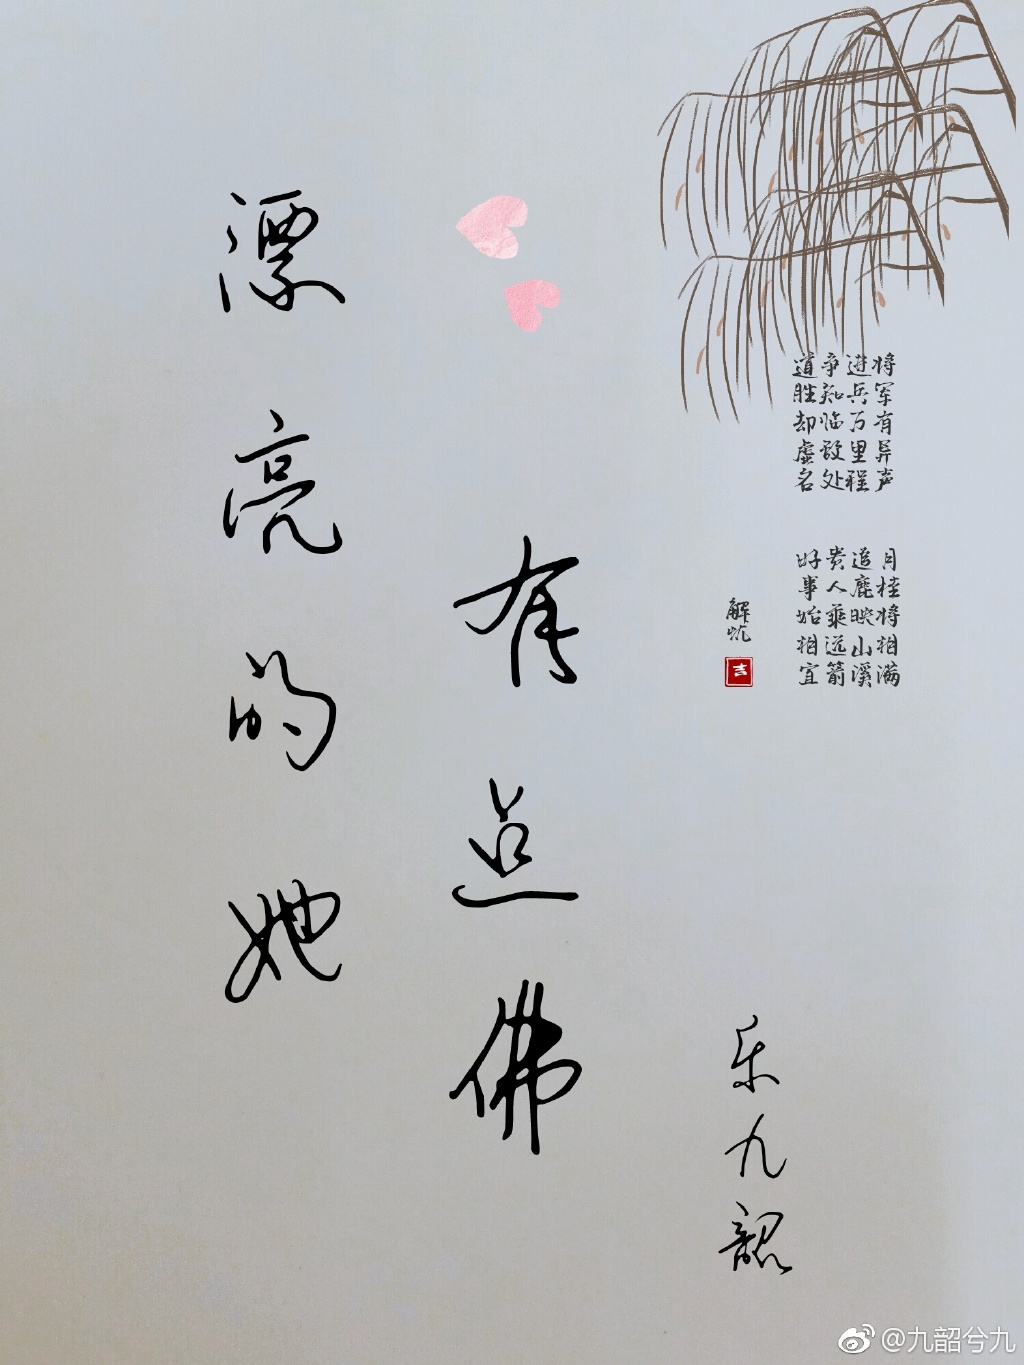 漂亮的她
有点佛
将军有异声
进兵万里程
争知临敌处
道胜却虚名
月桂将相满
追鹿映山溪
贵人乘远箭
好事始相宜
吉
乐九韶
@九韶兮九